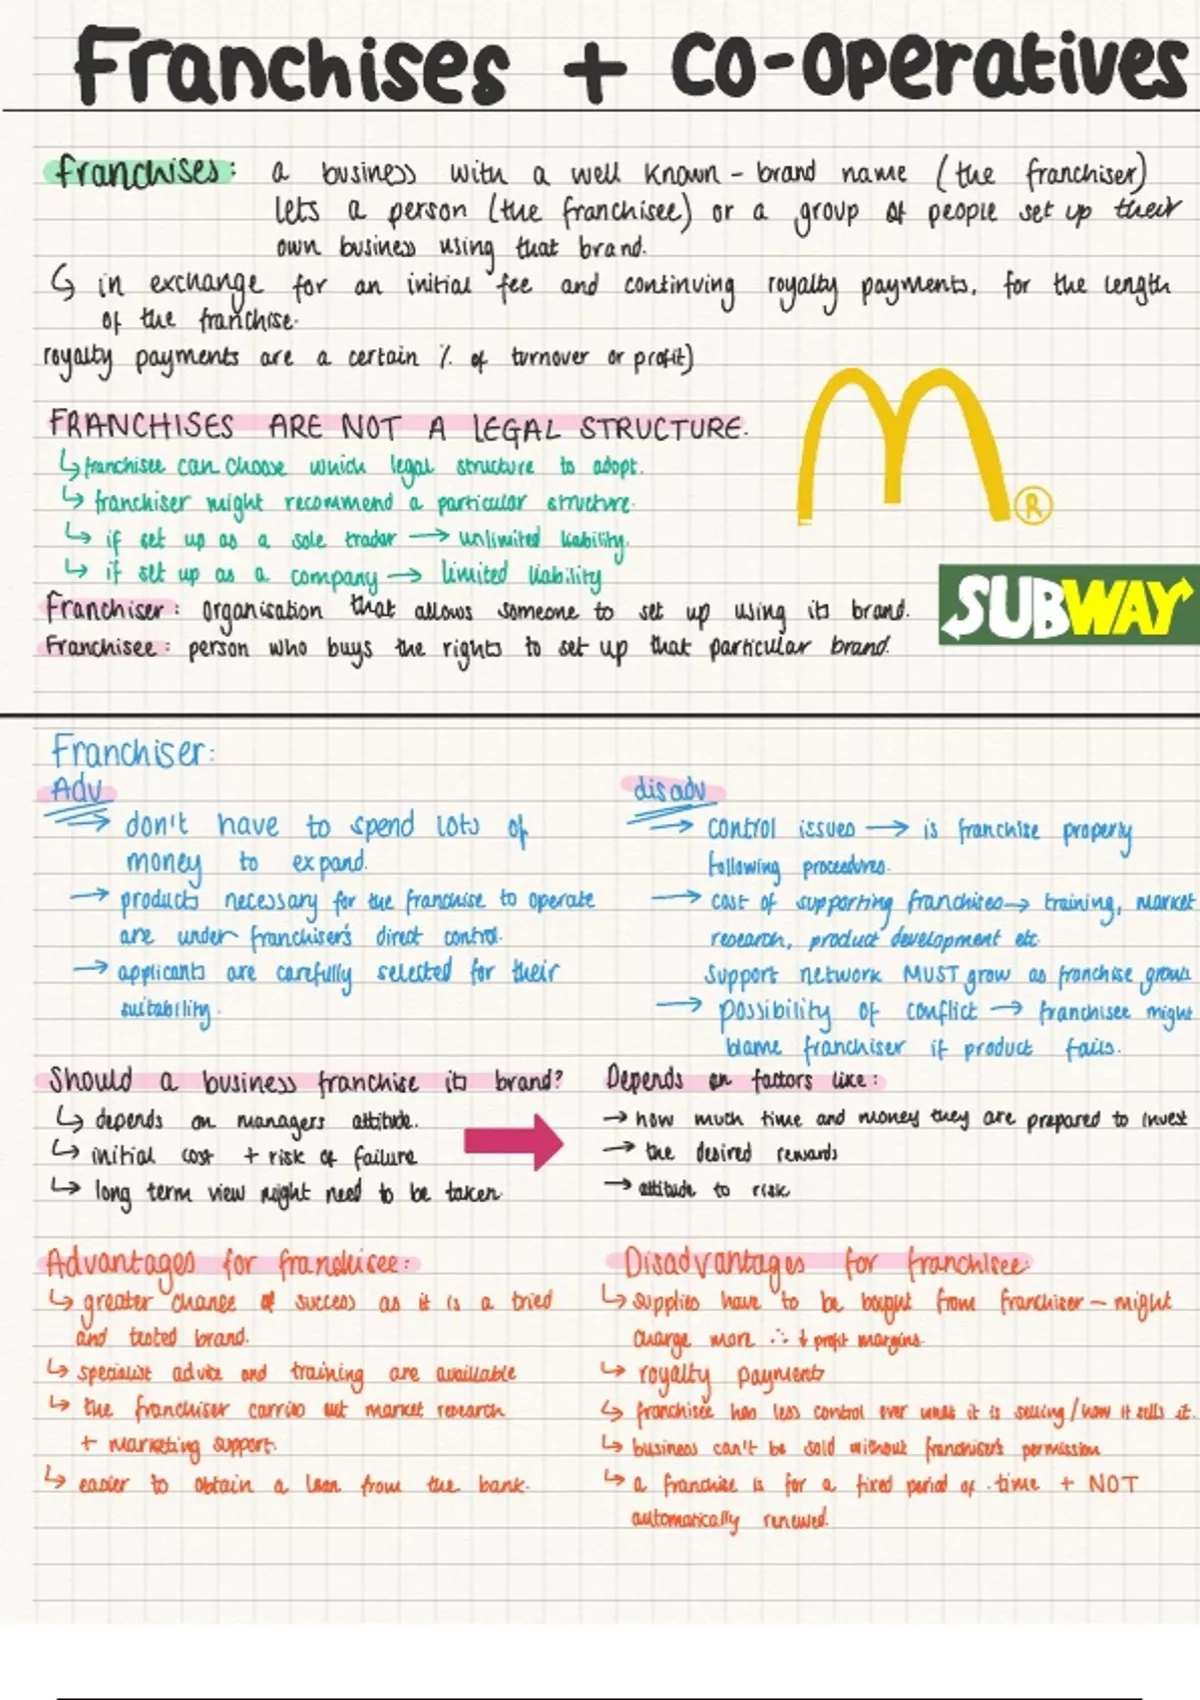 Franchises + Co-operatives
franchises: a business with a well known - brand name (the franchiser)
lets a person (the franchisee) or a group of people set up their
own business using that brand.
↳ in exchange for an initial fee and continuing royalty payments, for the length
of the franchise.
royalty payments are a certain % of turnover or profit)
FRANCHISES ARE NOT A LEGAL STRUCTURE.
↳ franchisee can choose which legal structure to adopt.
↳ franchiser might recommend a particular structure.
↳ if set up as a sole trader → unlimited liability.
↳ if set up as a company → limited liability
M®
SUBWAY
Franchiser: organisation that allows someone to set up using its brand.
Franchisee: person who buys the rights to set up that particular brand.
Franchiser:
Adv
→ don't have to spend lots of
money to expand.
→ products necessary for the franchise to operate
are under franchiser's direct control.
→ applicants are carefully selected for their
suitability.
disadv
→ control issues → is franchise properly
following procedures.
→ cost of supporting franchises → training, market
research, product development etc.
Support network MUST grow as franchise grows
→ possibility of conflict → franchisee might
blame franchiser if product fails.
Should a business franchise its brand?
↳ depends on managers attitude.
↳ initial cost + risk of failure
↳ long term view might need to be taken.
Depends on factors like:
→ how much time and money they are prepared to invest
→ the desired rewards
→ attitude to risk
Advantages for franchisee:
↳ greater chance of success as it is a tried
and tested brand.
↳ specialist advice and training are available
↳ the franchiser carries out market research
+ marketing support.
↳ easier to obtain a loan from the bank.
Disadvantages for franchisee:
↳ supplies have to be bought from franchiser - might
charge more ∴ ↓ profit margins.
↳ royalty payments
↳ franchisee has less control over what it is selling / how it sells it.
↳ business can't be sold without franchiser's permission
↳ a franchise is for a fixed period of time + NOT
automatically renewed.